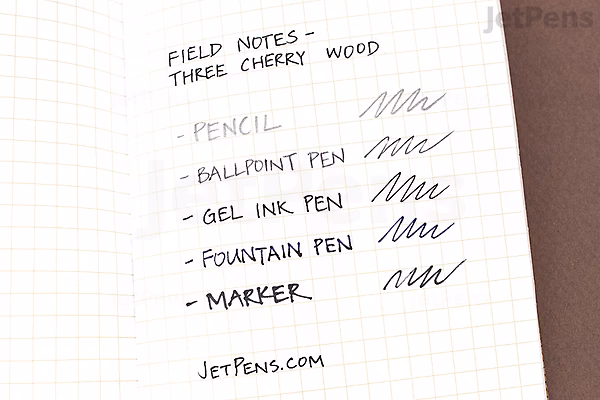 JetPens
FIELD NOTES -
THREE CHERRY WOOD
- PENCIL
- BALLPOINT PEN
- GEL INK PEN
- FOUNTAIN PEN
- MARKER
JETPENS.COM